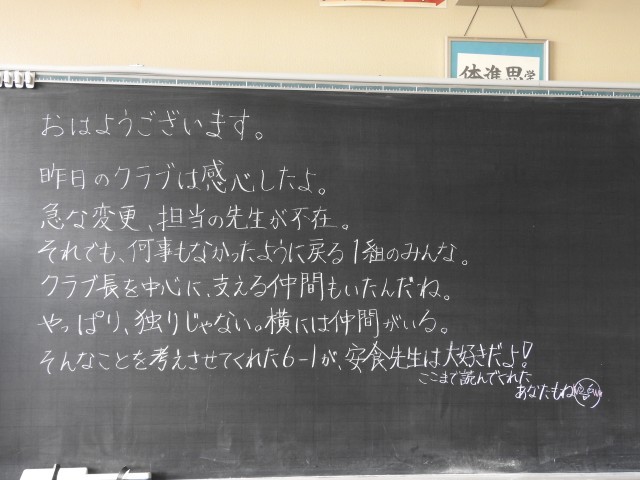 体進思学
おはようございます。
昨日のクラブは感心したよ。
急な変更、担当の先生が不在。
それでも、何事もなかったように戻る1組のみんな。
クラブ長を中心に、支える仲間もいたんだね。
やっぱり、独りじゃない。横には仲間がいる。
そんなことを考えさせてくれた6-1が、安食先生は大好きだよ!
ここまで読んでくれた
あなたもね